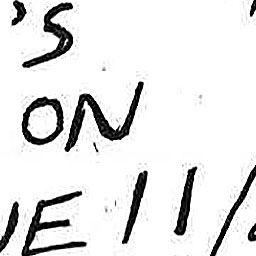 's
ON
NE 11/